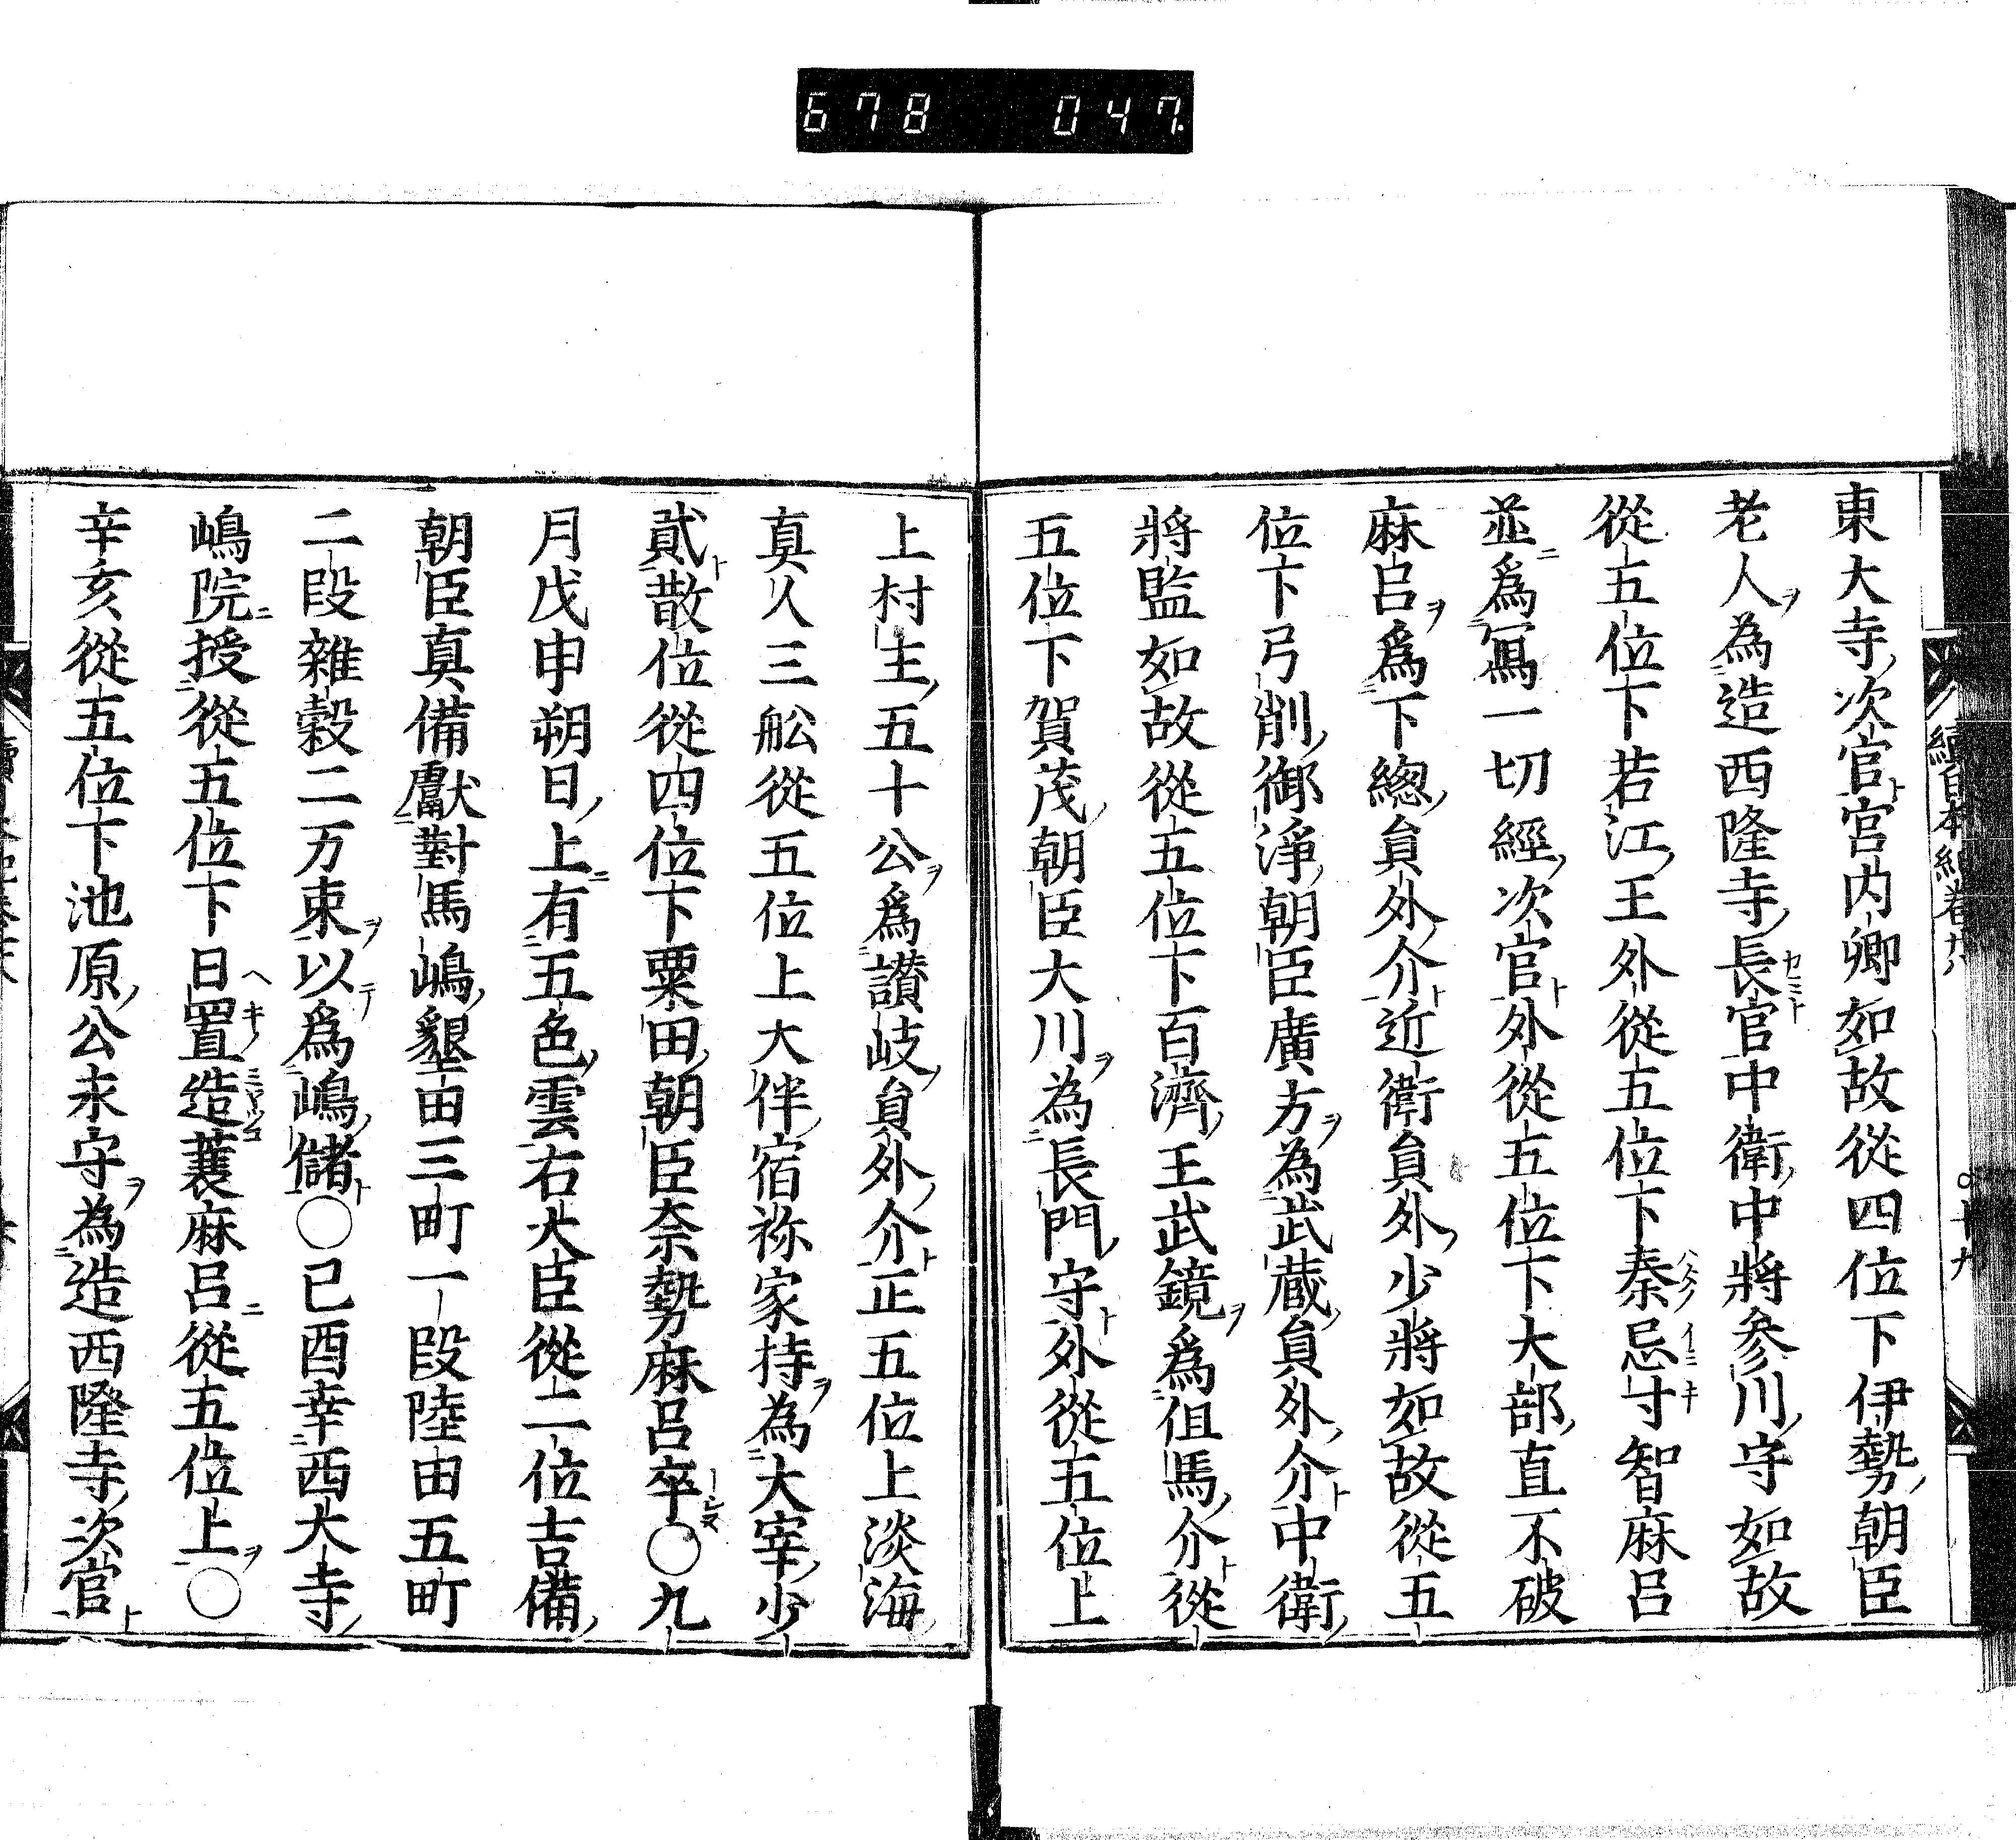 678 047
續日本紀卷廿八 〇十九
東大寺次官宮内卿如故從四位下伊勢朝臣
老人為造西隆寺長官中衛中將參川守如故
從五位下若江王外從五位下秦忌寸智麻呂
並爲寫一切經次官外從五位下大部直不破
麻呂爲下總員外介近衛員外少將如故從五
位下弓削御淨朝臣廣方為武蔵員外介中衛
將監如故從五位下百濟王武鏡爲但馬介從
五位下賀茂朝臣大川為長門守外從五位上
上村主五十公爲讃岐員外介正五位上淡海
真人三舩從五位上大伴宿祢家持為大宰少
貳散位從四位下粟田朝臣奈勢麻呂卒〇九
月戊申朔日上有五色雲右大臣從二位吉備
朝臣真備獻對馬嶋墾田三町一段陸田五町
二段雜穀二万束以爲嶋儲〇已酉幸西大寺
嶋院授從五位下日置造蓑麻呂從五位上〇
辛亥從五位下池原公永守為造西隆寺次官